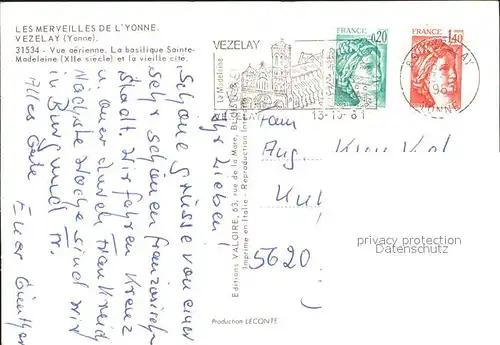 LES MERVEILLES DE L'YONNE.
VEZELAY (Yonne).
31534 - Vue aérienne. La basilique Sainte-
Madeleine (XIIe siècle) et la vieille cité.
VEZELAY
La Madeleine
FRANCE
0,20
FRANCE
1,40
13-10-81
YONNE
Ihr Lieben!
Schöne Grüsse von einer
sehr schönen französischen
Stadt. Wir fahren Kreuz
u. quer durch Frankreich
Nächste Woche sind wir
in Burgund
Alles Gute
Euer Günther
Editions VALOIRE, 63, rue de la Mare, BLOIS
Imprimé en Italie - Reproduction Interdite
Fam
Aug.
5620
privacy protection
Production LECONTE